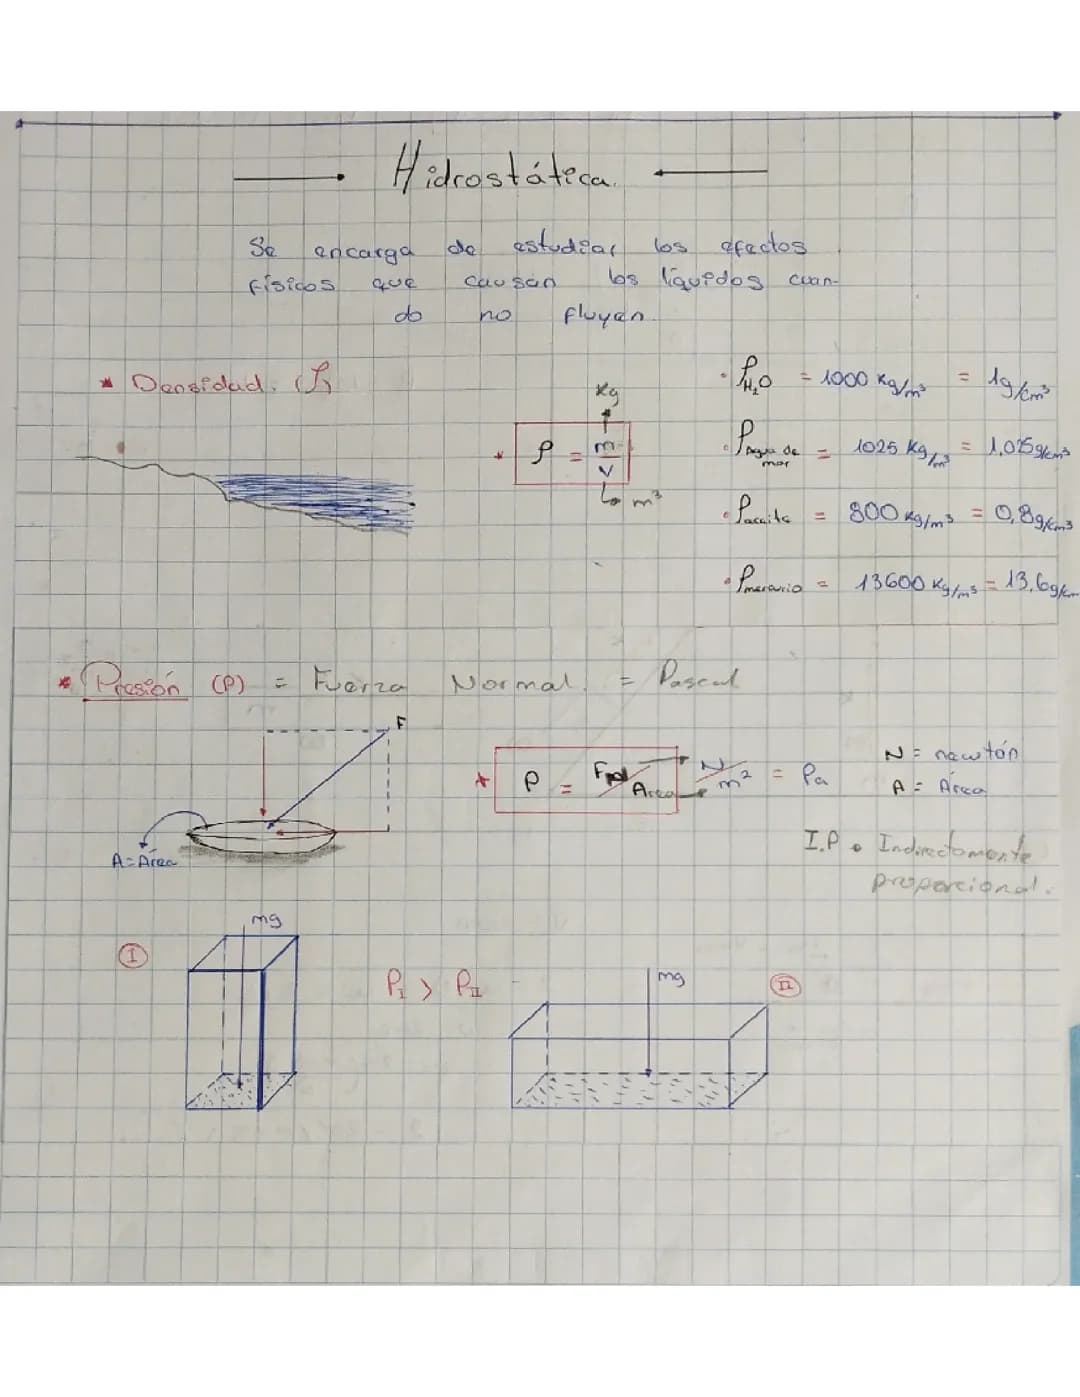 Hidrostática.
Se encarga de estudiar los efectos
físicos que causan los líquidos cuan-
do no fluyen.
* Densidad. (ρ
Kg
* ρ = m/v
m³
• ρH₂O = 1000 Kg/m³ = 1g/cm³
• ρAgua de mar = 1025 Kg/m³ = 1,025g/cm³
• ρaceite = 800 Kg/m³ = 0,8g/cm³
• ρmercurio = 13600 Kg/m³ = 13,6g/cm
* Presión (P) = Fuerza Normal. = Pascal
F
A=Área
* P = /Area N/m² = Pa
N = newtón
A = Área
I.P • Indirectamente
proporcional.
I
mg
PI > PII
mg
II